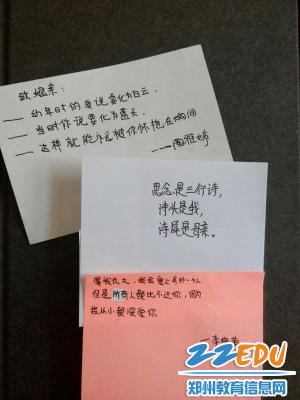 致娘亲：
——幼年时的我说要化为白云，
——当时你说要化为蓝天，
——这样就能永远被你怀抱在胸间
思念是三行诗，
诗头是我，
诗尾是母亲。
等我长大，我会爱上另外一个人
但是所有人都比不过你，因为
我从小就深爱你
ZZEDU
郑州教育信息网